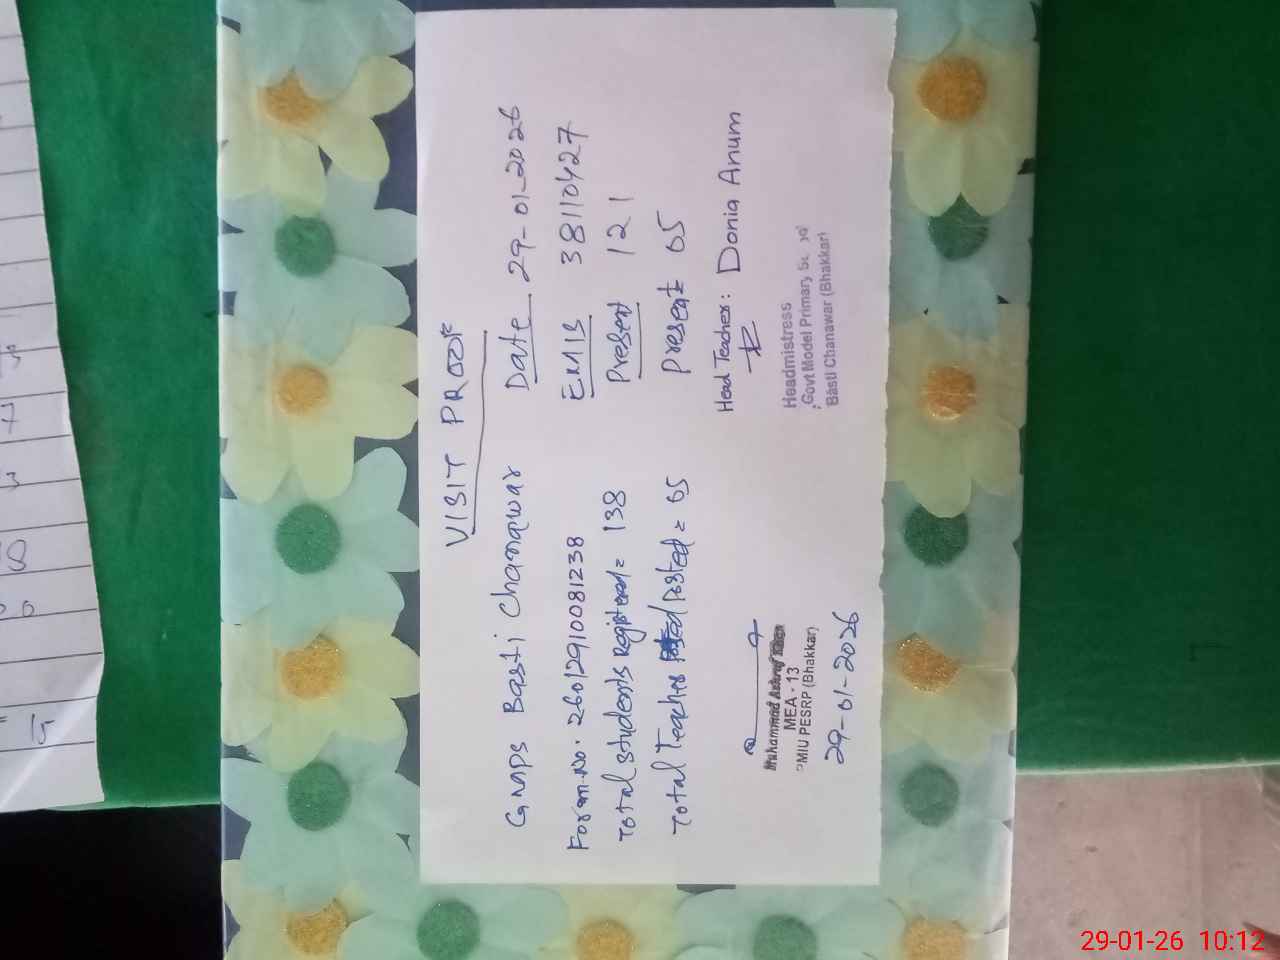 VISIT PROOF
GMPS Basti Chanawar Date 29-01-2026
Form.No. 26012910081238 EMIS 38110427
Total Students Registered = 138 Present 121
Total Teacher Posted = 05 Present 05
Head Teacher: Donia Anum
Headmistress
Govt Model Primary
Basti Chanawar (Bhakkar)
Muhammad
MEA - 13
PMIU PESRP (Bhakkar)
29-01-2026
29-01-26 10:12